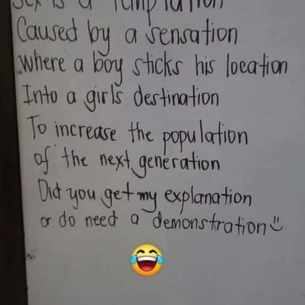 Sex is a Temptation
Caused by a sensation
Where a boy sticks his location
Into a girls destination
To increase the population
of the next generation
Did you get my explanation
or do need a demonstration